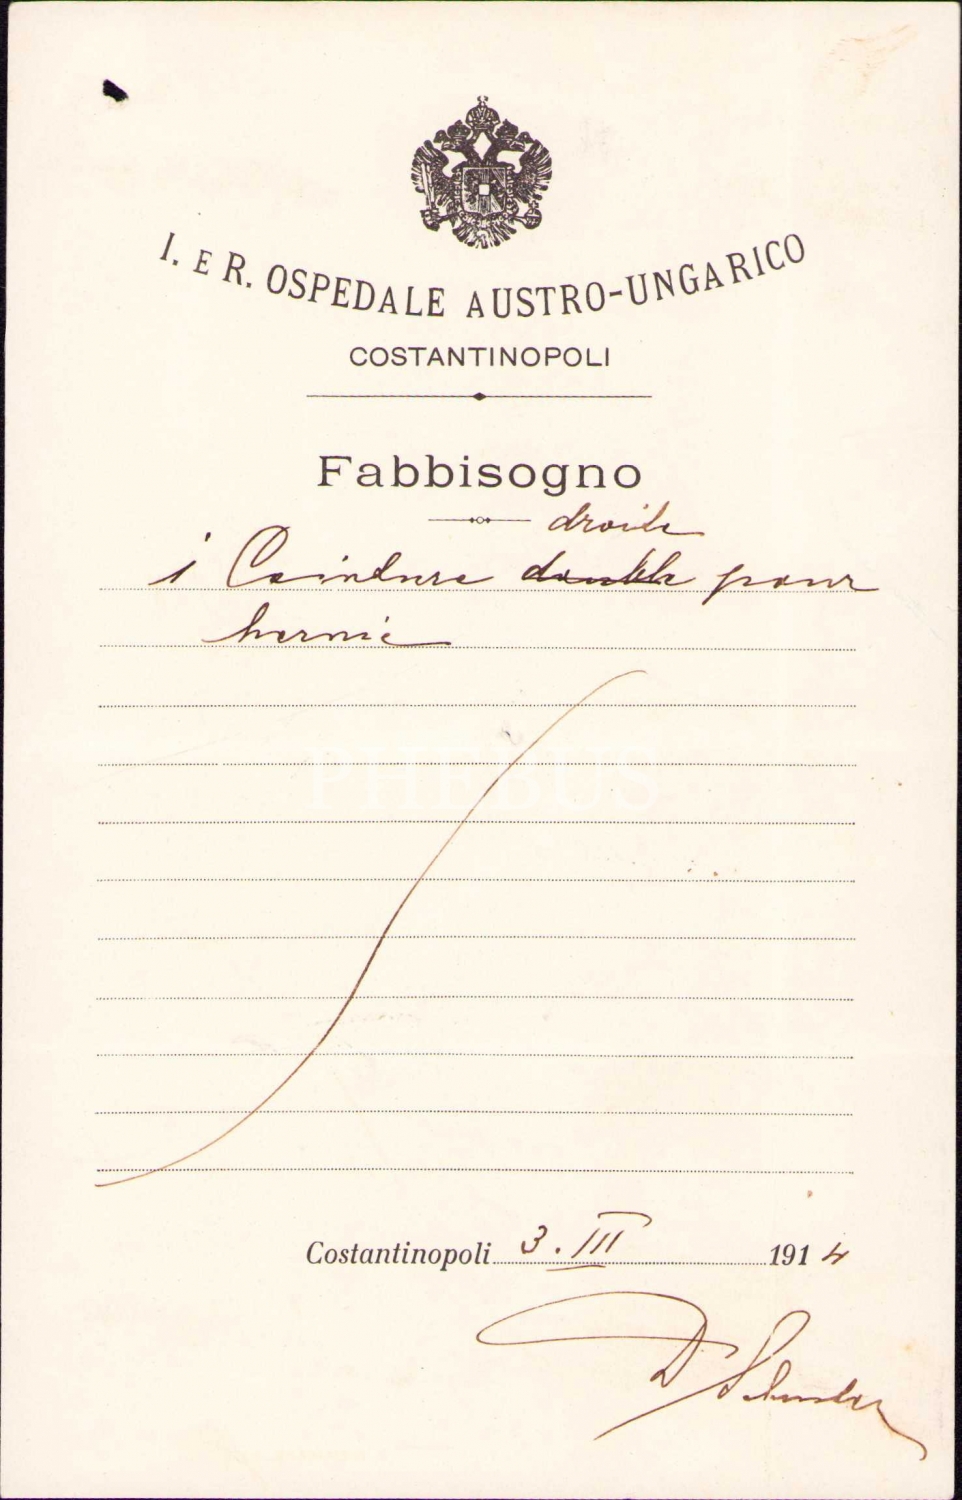 I. E R. OSPEDALE AUSTRO-UNGARICO
COSTANTINOPOLI
Fabbisogno
droite
1 Ceinture double pour
hernie
PHEBUS
Costantinopoli 3. III 1914
Dr